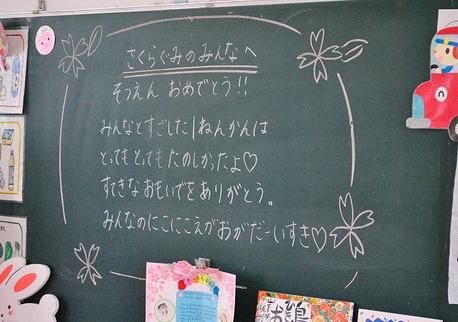 さくらぐみのみんなへ
そつえん おめでとう!!
みんなとすごした1ねんかんは
とってもとってもたのしかったよ♡
すてきなおもいでをありがとう。
みんなのにこにこえがおがだーいすき♡